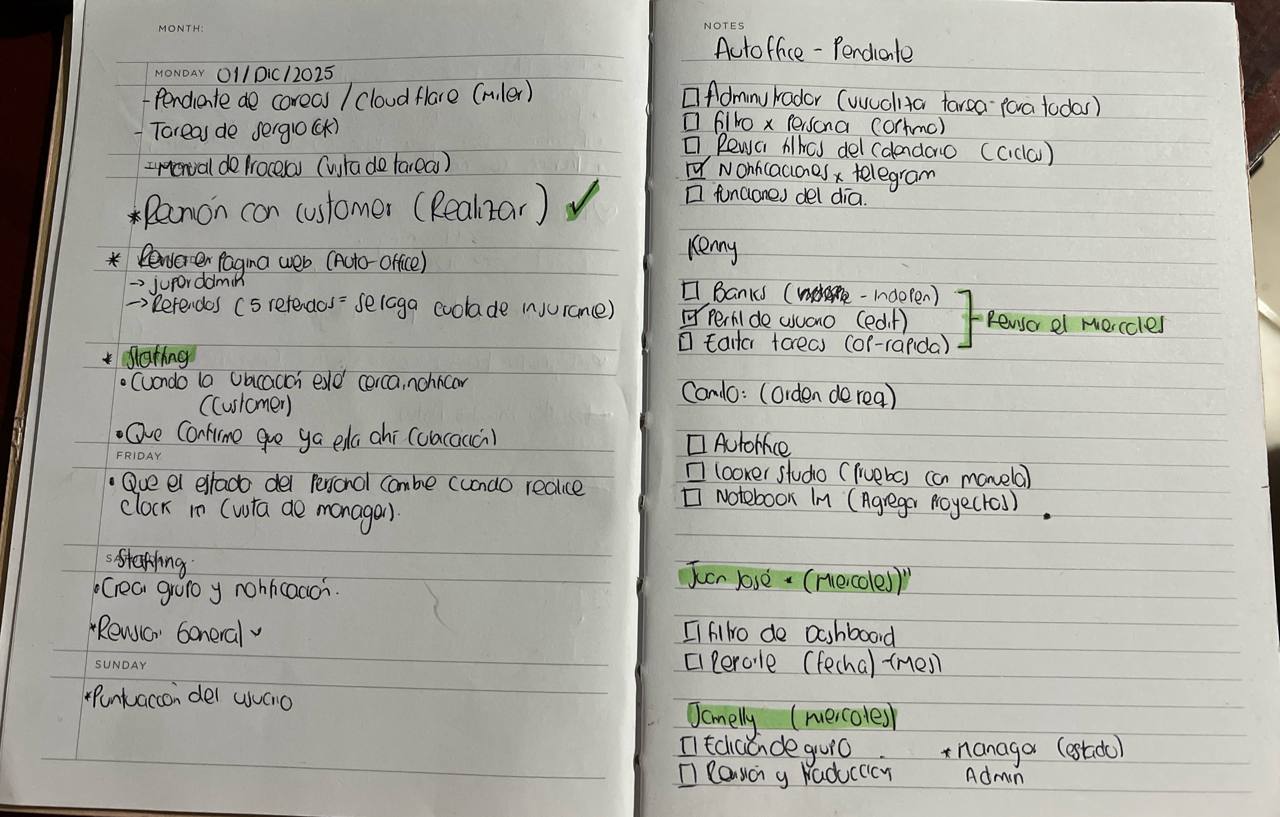 MONTH:
MONDAY 01/Dic/2025
- Pendiente de correos / Cloudflare (Miler)
- Tareas de Sergio (ck)
- Manual de Procesos (vista de tareas)
* Reunión con customer (Realizar) ✓
* Revisar Página web (Auto-Office)
→ superadmin
→ Referidos (5 referidos = se paga cuota de insurance)
* Staffing
• Cuando la ubicación esté cerca, notificar
(Customer)
• Que confirme que ya esta ahí (ubicación)
FRIDAY
• Que el estado del Personal cambie cuando realice
clock in (vista de manager).
Staffing.
• Crear grupo y notificación.
* Revisión General ✓
SUNDAY
* Puntuación del usuario
NOTES
Autoffice - Pendiente
☐ Administrador (visualizar tarea para todas)
☐ filtro x persona (optimo)
☐ Revisar filtros del calendario (ciclos)
☑ Notificaciones x telegram
☐ funciones del día.
Kenny
☐ Banks ( - indepen)
☑ Perfil de usuario (edit)
☐ Editar tareas (op-rapida)
Revisar el Miercoles
Camilo: (Orden de req)
☐ Autoffice
☐ looker studio (pruebas con manuela)
☐ Notebook lm (Agregar Proyectos)
Juan José * (Miercoles)"
☐ filtro de Dashboard
☐ Reporte (fecha) - (Mes)
Jamelly (miercoles)
☐ Edición de grupo * Manager (estado)
☐ Revisión y traducción Admin